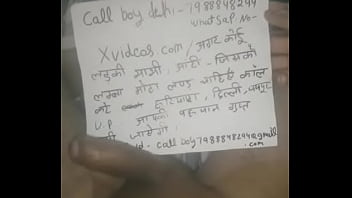 Call boy delhi - 7988848294
WhatSaP. No-
Xvideos.com / अगर कोई
लड़की भाभी, आंटी - जिसको
लम्बा मोटा लण्ड चाहिये कॉल
करे हरियाणा, दिल्ली, जयपुर
U.P. आपकी पहचान गुप्त
जायेगी
call boy7988848294@gmail
.com